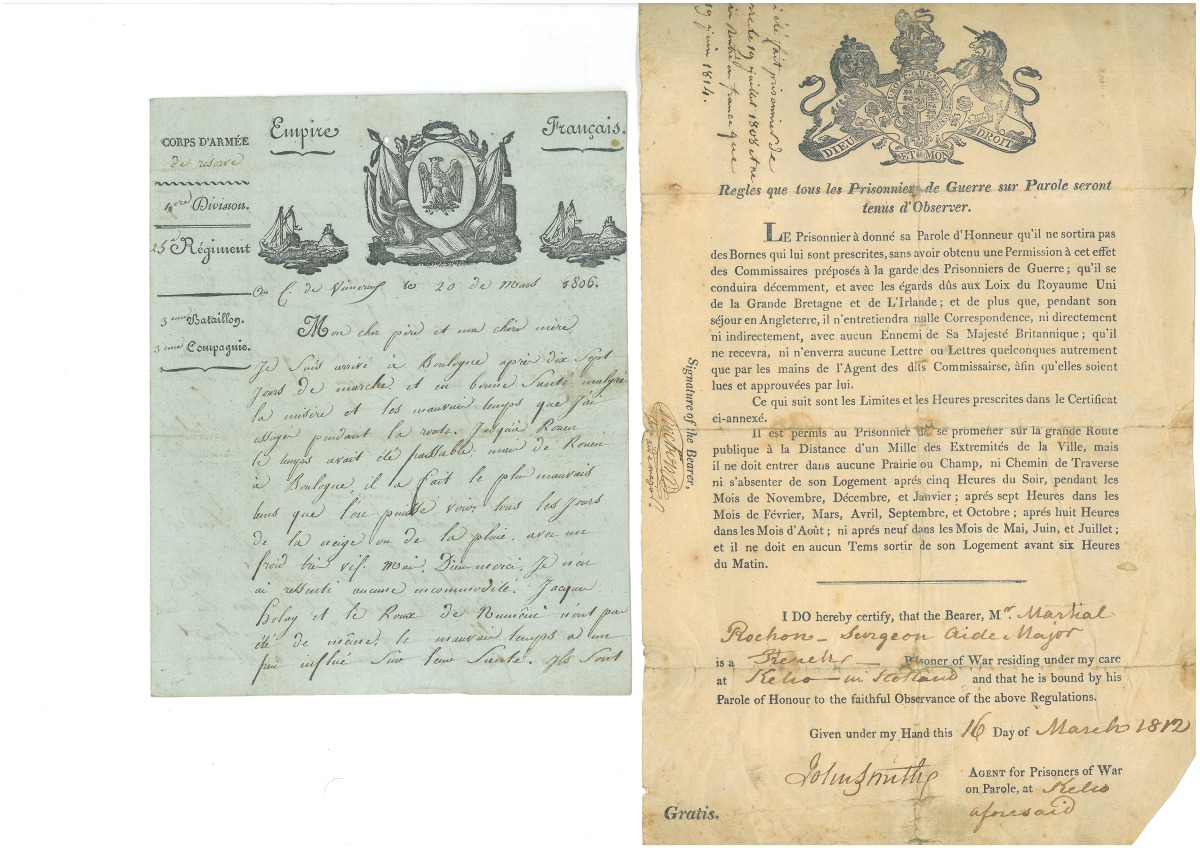 CORPS D'ARMÉE
de réserve
1ère Division.
25e Régiment
3eme Bataillon.
3eme Compagnie.
Empire Français.
Au C. de Vimereux le 20 de Mars 1806.
Mon cher père et ma chère mère
Je suis arrivé à Boulogne après dix Sept
Jours de marche et en bonne Santé malgré
la misère et les mauvais temps que J'ai
essuyé pendant la route. Jusqu'à Rouen
le temps avait été passable; mais de Rouen
à Boulogne, il a fait le plus mauvais
tems que l'on puisse voir; tous les Jours
de la neige ou de la pluie, avec un
froid très vif. Mais, Dieu merci, Je n'en
ai ressenti aucune incommodité. Jacques
et le Roux de n'ont pas
été de même; le mauvais temps a un
peu influé Sur leur Santé. Ils Sont
été fait prisonnier de
le 19 juillet 1808 et ne
rentré en france que
19 juin 1814.
DIEU ET MON DROIT
Regles que tous les Prisonniers de Guerre sur Parole seront
tenus d'Observer.
LE Prisonnier à donné sa Parole d'Honneur qu'il ne sortira pas
des Bornes qui lui sont prescrites, sans avoir obtenu une Permission à cet effet
des Commissaires préposés à la garde des Prisonniers de Guerre; qu'il se
conduira décemment, et avec les égards dûs aux Loix du Royaume Uni
de la Grande Bretagne et de L'Irlande; et de plus que, pendant son
séjour en Angleterre, il n'entretiendra nulle Correspondence, ni directement
ni indirectement, avec aucun Ennemi de Sa Majesté Britannique; qu'il
ne recevra, ni n'enverra aucune Lettre ou Lettres quelconques autrement
que par les mains de l'Agent des dits Commissairse, àfin qu'elles soient
lues et approuvées par lui.
Ce qui suit sont les Limites et les Heures prescrites dans le Certificat
ci-annexé.
Il est permis au Prisonnier de se promener sur la grande Route
publique à la Distance d'un Mille des Extremités de la Ville, mais
il ne doit entrer dans aucune Prairie ou Champ, ni Chemin de Traverse
ni s'absenter de son Logement aprés cinq Heures du Soir, pendant les
Mois de Novembre, Décembre, et Janvier; aprés sept Heures dans les
Mois de Février, Mars, Avril, Septembre, et Octobre; aprés huit Heures
dans les Mois d'Août; ni aprés neuf dans les Mois de Mai, Juin, et Juillet;
et il ne doit en aucun Tems sortir de son Logement avant six Heures
du Matin.
Signature of the Bearer,
Rochon
I DO hereby certify, that the Bearer, Mr. Martial
Rochon - Surgeon Aide Major
is a French Prisoner of War residing under my care
at Kelso - in Scotland and that he is bound by his
Parole of Honour to the faithful Observance of the above Regulations.
Given under my Hand this 16 Day of March 1812
John Smith
AGENT for Prisoners of War
on Parole, at Kelso
aforesaid
Gratis.